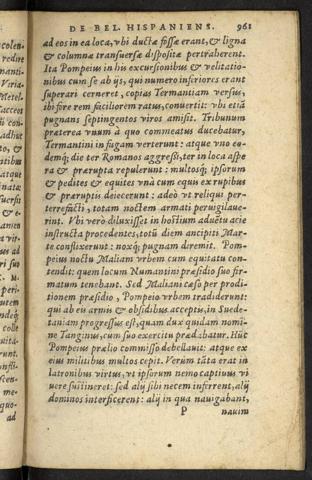 DE BEL. HISPANIENS. 961
ad eos in ea loca, vbi ductæ fossæ erant, & ligna
& columnæ transuersæ dispositæ pertraherent.
Ita Pompeius in his excursionibus & velitatio-
nibus cum se ab ijs, qui numero inferiores erant
superari cerneret, copias Termantiam versus,
ibi fore rem faciliorem ratus, conuertit: vbi etiã
pugnans septingentos viros amisit. Tribunum
præterea vnum à quo commeatus ducebatur,
Termantini in fugam verterunt: atque vno eo-
demq́; die ter Romanos aggressi, ter in loca aspe
ra & prærupta repulerunt: multosq́; ipsorum
& pedites & equites vnà cum equis ex rupibus
& præruptis deiecerunt: adeò vt reliqui per-
terrefacti, totam noctem armati peruigilaue-
rint. Vbi verò diluxisset in hostium aduentu acie
instructa procedentes, totũ diem ancipiti Mar-
te conflixerunt: noxq́; pugnam diremit. Pom-
peius noctu Maliam vrbem cum equitatu con-
tendit: quem locum Numantini præsidio suo fir-
matum tenebant. Sed Maliani cæso per prodi-
tionem præsidio, Pompeio vrbem tradiderunt:
qui ab eis armis & obsidibus acceptis, in Suede-
taniam progressus est, quam dux quidam nomi-
ne Tanginus, cum suo exercitu prædabatur. Hũc
Pompeius prælio commisso debellauit: atque ex
eius militibus multos cepit. Verùm tãta erat in
latronibus virtus, vt ipsorum nemo captiuus vi
uere sustineret: sed alij sibi necem inferrent, alij
dominos interficerent: alij in qua nauigabant,
P nauim
colen-
redire
manti-
Viria-
Metel-
tacceos
adhuc
to, &
ntibus
atque
inatæ
& 
ta vir-
us ad
peri-
utem
indeq́;
colle
uita-
runt.
scen-
me-
quo-
ad